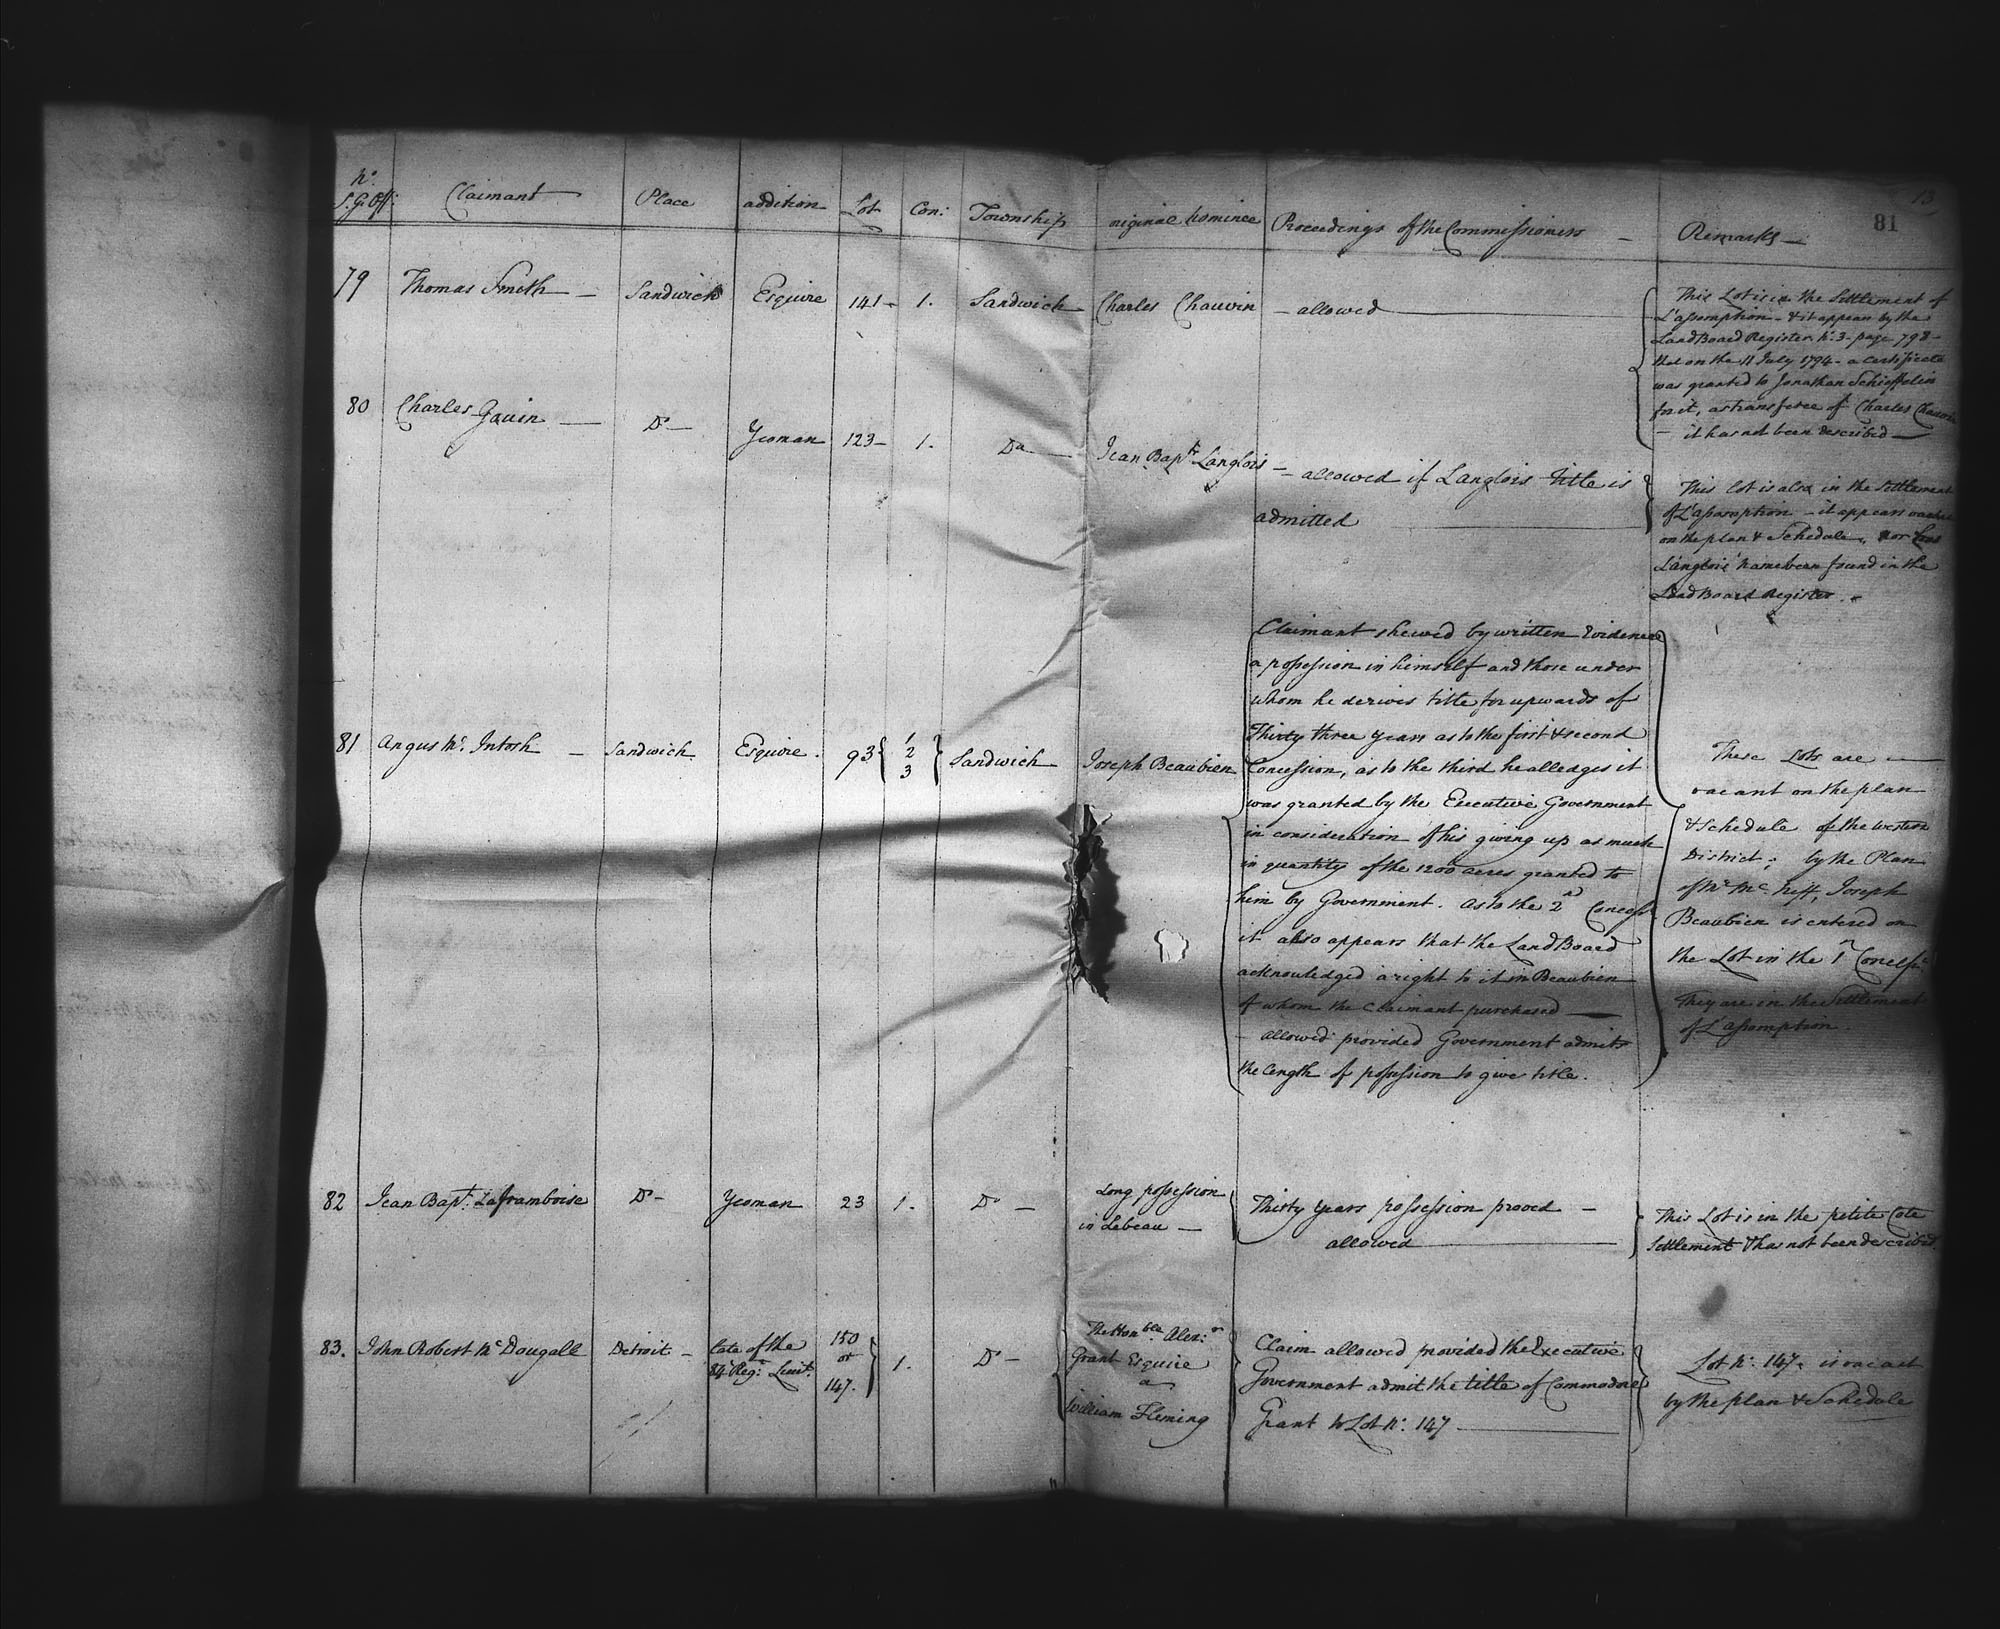 13
81
No. S.G. Off: Claimant Place addition Lot Con: Township original nominee Proceedings of the Commissioners Remarks
79 Thomas Smith Sandwich Esquire 141 1. Sandwich Charles Chauvin allowed
This Lot is in the Settlement of
L'assomption - & it appears by the
Land Board Register No. 3 page 798
that on the 11 July 1794 - a certificate
was granted to Jonathan Schieffelin
for it, as transferee of Charles Chauvin
- it has not been described
80 Charles Gouin Do Yeoman 123 1. Do Jean Bapte Langlois - allowed if Langlois title is
admitted
This lot is also in the Settlement
of L'assomption - it appears vacant
on the plan & Schedule, nor has
Langlois' name been found in the
Land Board Register.
81 Angus Mc Intosh Sandwich Esquire. 93 { 1 2 3 } Sandwich Joseph Beaubien
Claimant shewed by written Evidence
a possession in himself and those under
whom he derives title for upwards of
Thirty three years as to the first & second
Concession, as to the third he alledges it
was granted by the Executive Government
in consideration of his giving up as much
in quantity of the 1200 acres granted to
him by Government. As to the 2nd Concessn
it also appears that the Land Board
acknowledged a right to it in Beaubien
of whom the Claimant purchased
- allowed provided Government admits
the length of possession to give title.
These Lots are
vacant on the plan
& Schedule of the western
District; by the Plan
of Mr Mc Niff, Joseph
Beaubien is entered on
the Lot in the 1st Concessn
They are in the Settlement
of L'assomption.
82 Jean Bapt. Laframboise Do Yeoman 23 1. Do
Long possession
in Lebeau
Thirty Years possession proved
allowed
This Lot is in the petite Cote
Settlement & has not been described.
83. John Robert Mc Dougall Detroit
late of the
84 Regt Lieut.
150
or
147.
1. Do
The Honble Alexr
Grant Esquire
William Fleming
Claim allowed provided the Executive
Government admit the title of Commodore
Grant to Lot No. 147
Lot No. 147. is vacant
by the plan & Schedule